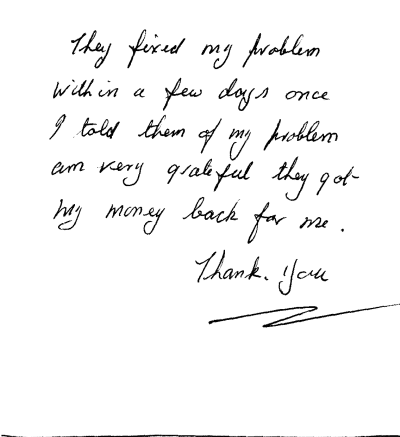 They fixed my problem
within a few days once
I told them of my problem
am very grateful they got
my money back for me.
Thank. You